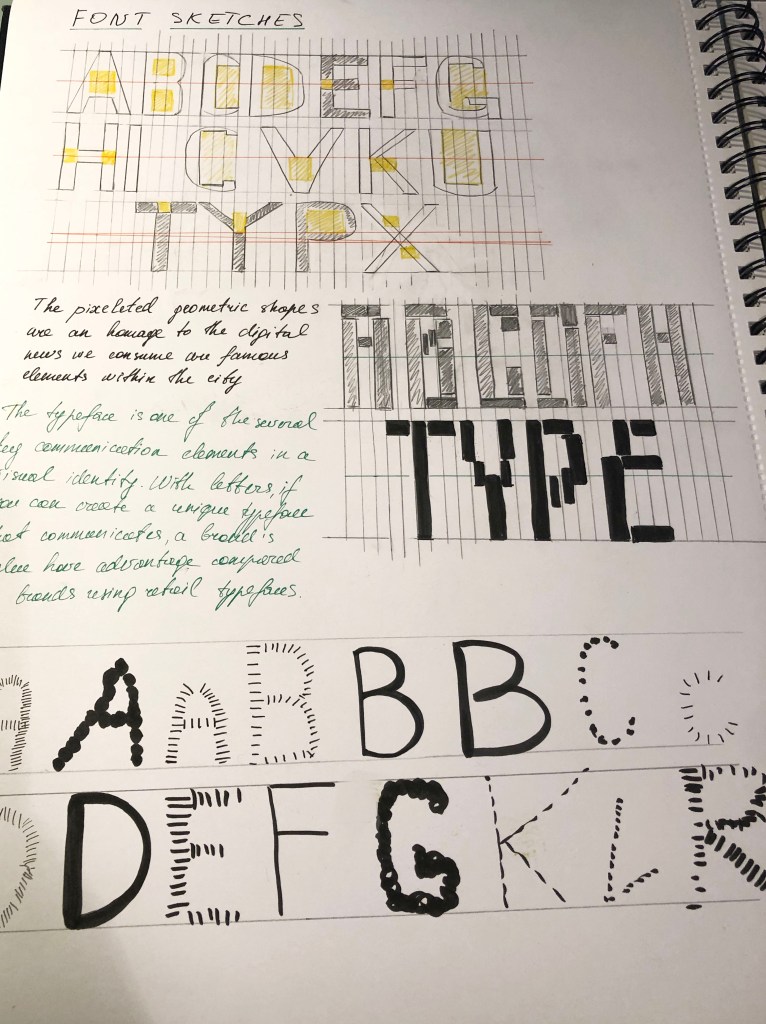 FONT SKETCHES
A B C D E F G
H I G V K U
T Y P X
The pixeleted geometric shapes
are an homage to the digital
news we consume are famous
elements within the city
The typeface is one of the several
key communication elements in a
visual identity. With letters, if
you can create a unique typeface
that communicates, a brand is
have advantage compared
brands using retail typefaces.
TYPE
A A A B B B C C
D D E F G K L R